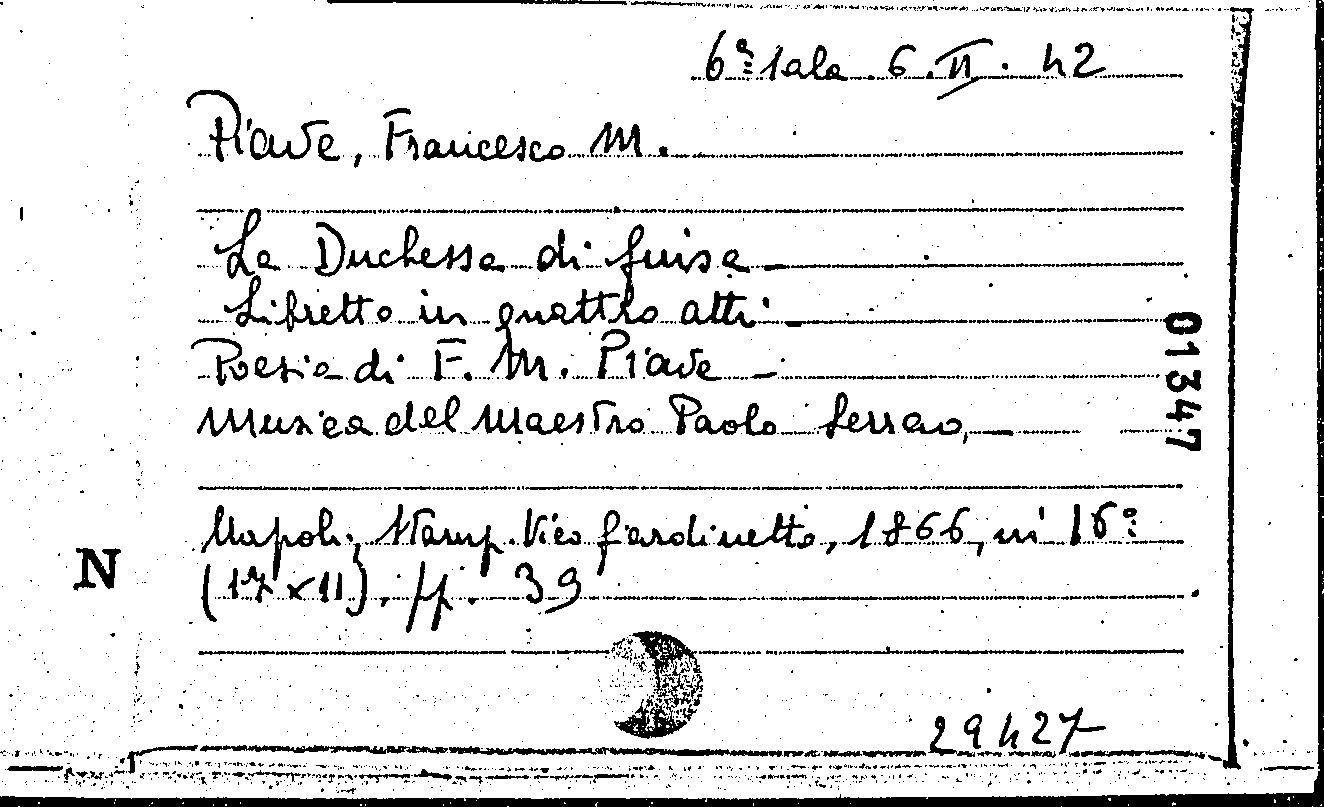 6ª Sala 6.II.42
Piave, Francesco M.
La Duchessa di Guisa -
Libretto in quattro atti -
Poesia di F. M. Piave -
Musica del Maestro Paolo Serrao, -
01347
Napoli, Stamp. Vico Gerolimini, 1866, in 16°
N
(17 x 11), pp. 39
29427